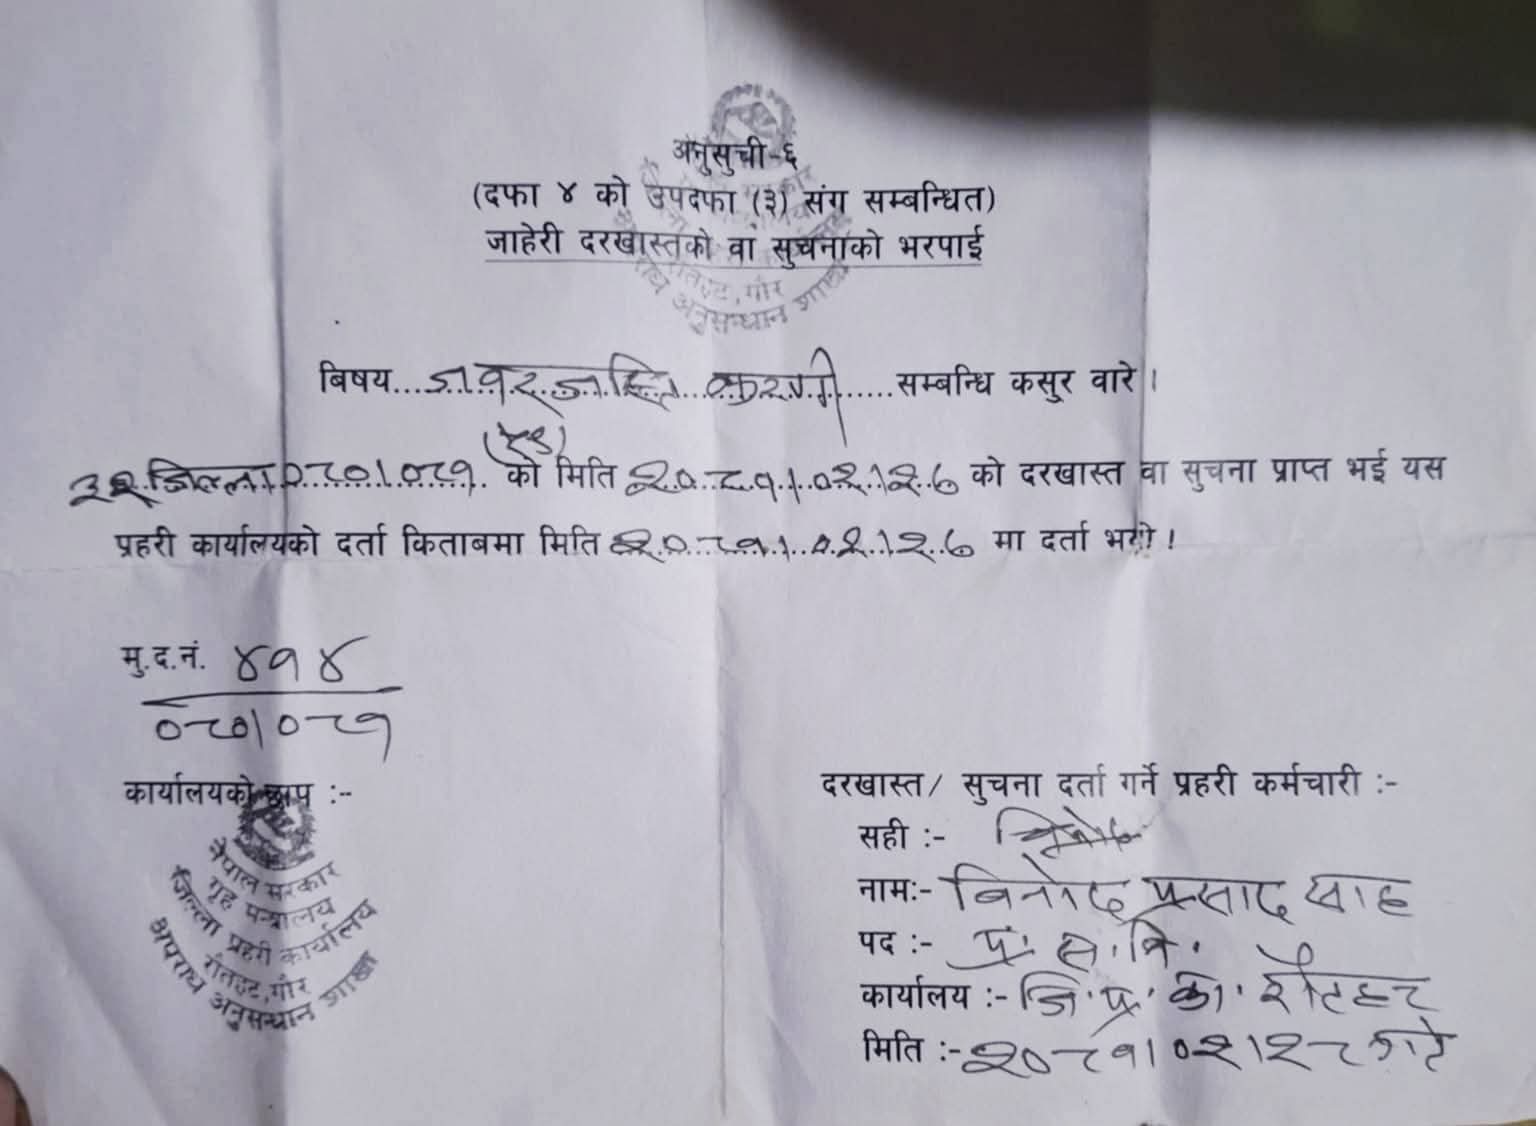 अनुसुची-६
(दफा ४ को उपदफा (३) संग सम्बन्धित)
जाहेरी दरखास्तको वा सुचनाको भरपाई
रौतहट, गौर
अपराध अनुसन्धान शाखा
बिषय...जवरजस्ति करणी......सम्बन्धि कसुर वारे ।
जिल्ला ०८०।०८१ को मिति २०८१।०२।२७ को दरखास्त वा सुचना प्राप्त भई यस
प्रहरी कार्यालयको दर्ता किताबमा मिति २०८१।०२।२७ मा दर्ता भयो ।
मु.द.नं. ४१४
०८०।०८१
कार्यालयको छाप :-
नेपाल सरकार
गृह मन्त्रालय
जिल्ला प्रहरी कार्यालय
रौतहट, गौर
अपराध अनुसन्धान शाखा
दरखास्त/ सुचना दर्ता गर्ने प्रहरी कर्मचारी :-
सही :-
नामः- बिनोद प्रसाद साह
पद :- प्र. स. नि.
कार्यालय :- जि. प्र. का. रौटहट
मिति :- २०८१।०२।२८ गते